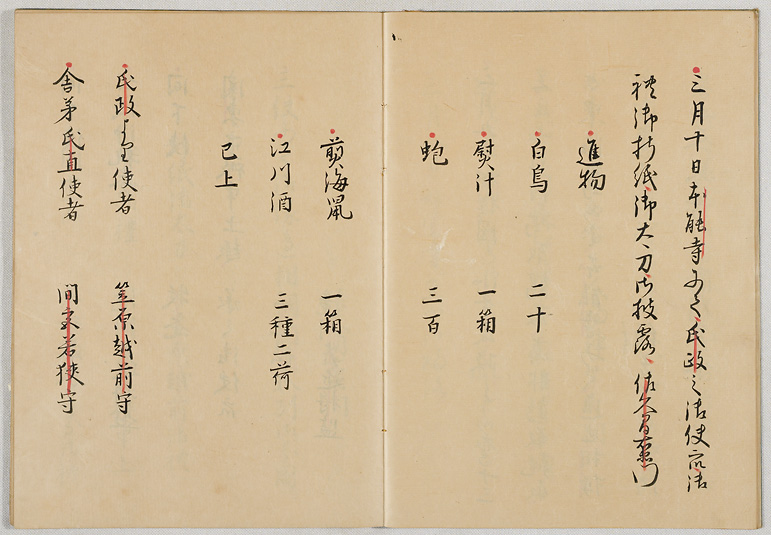 三月十日本能寺にて氏政之御使衆御
礼御折紙御太刀御披露、佐久間右衛門
進物
白鳥　二十
熨斗　一箱
蚫　三百
煎海鼠　一箱
江川酒　三種二荷
已上
氏政より使者　笠原越前守
舎弟氏直使者　間宮若狭守